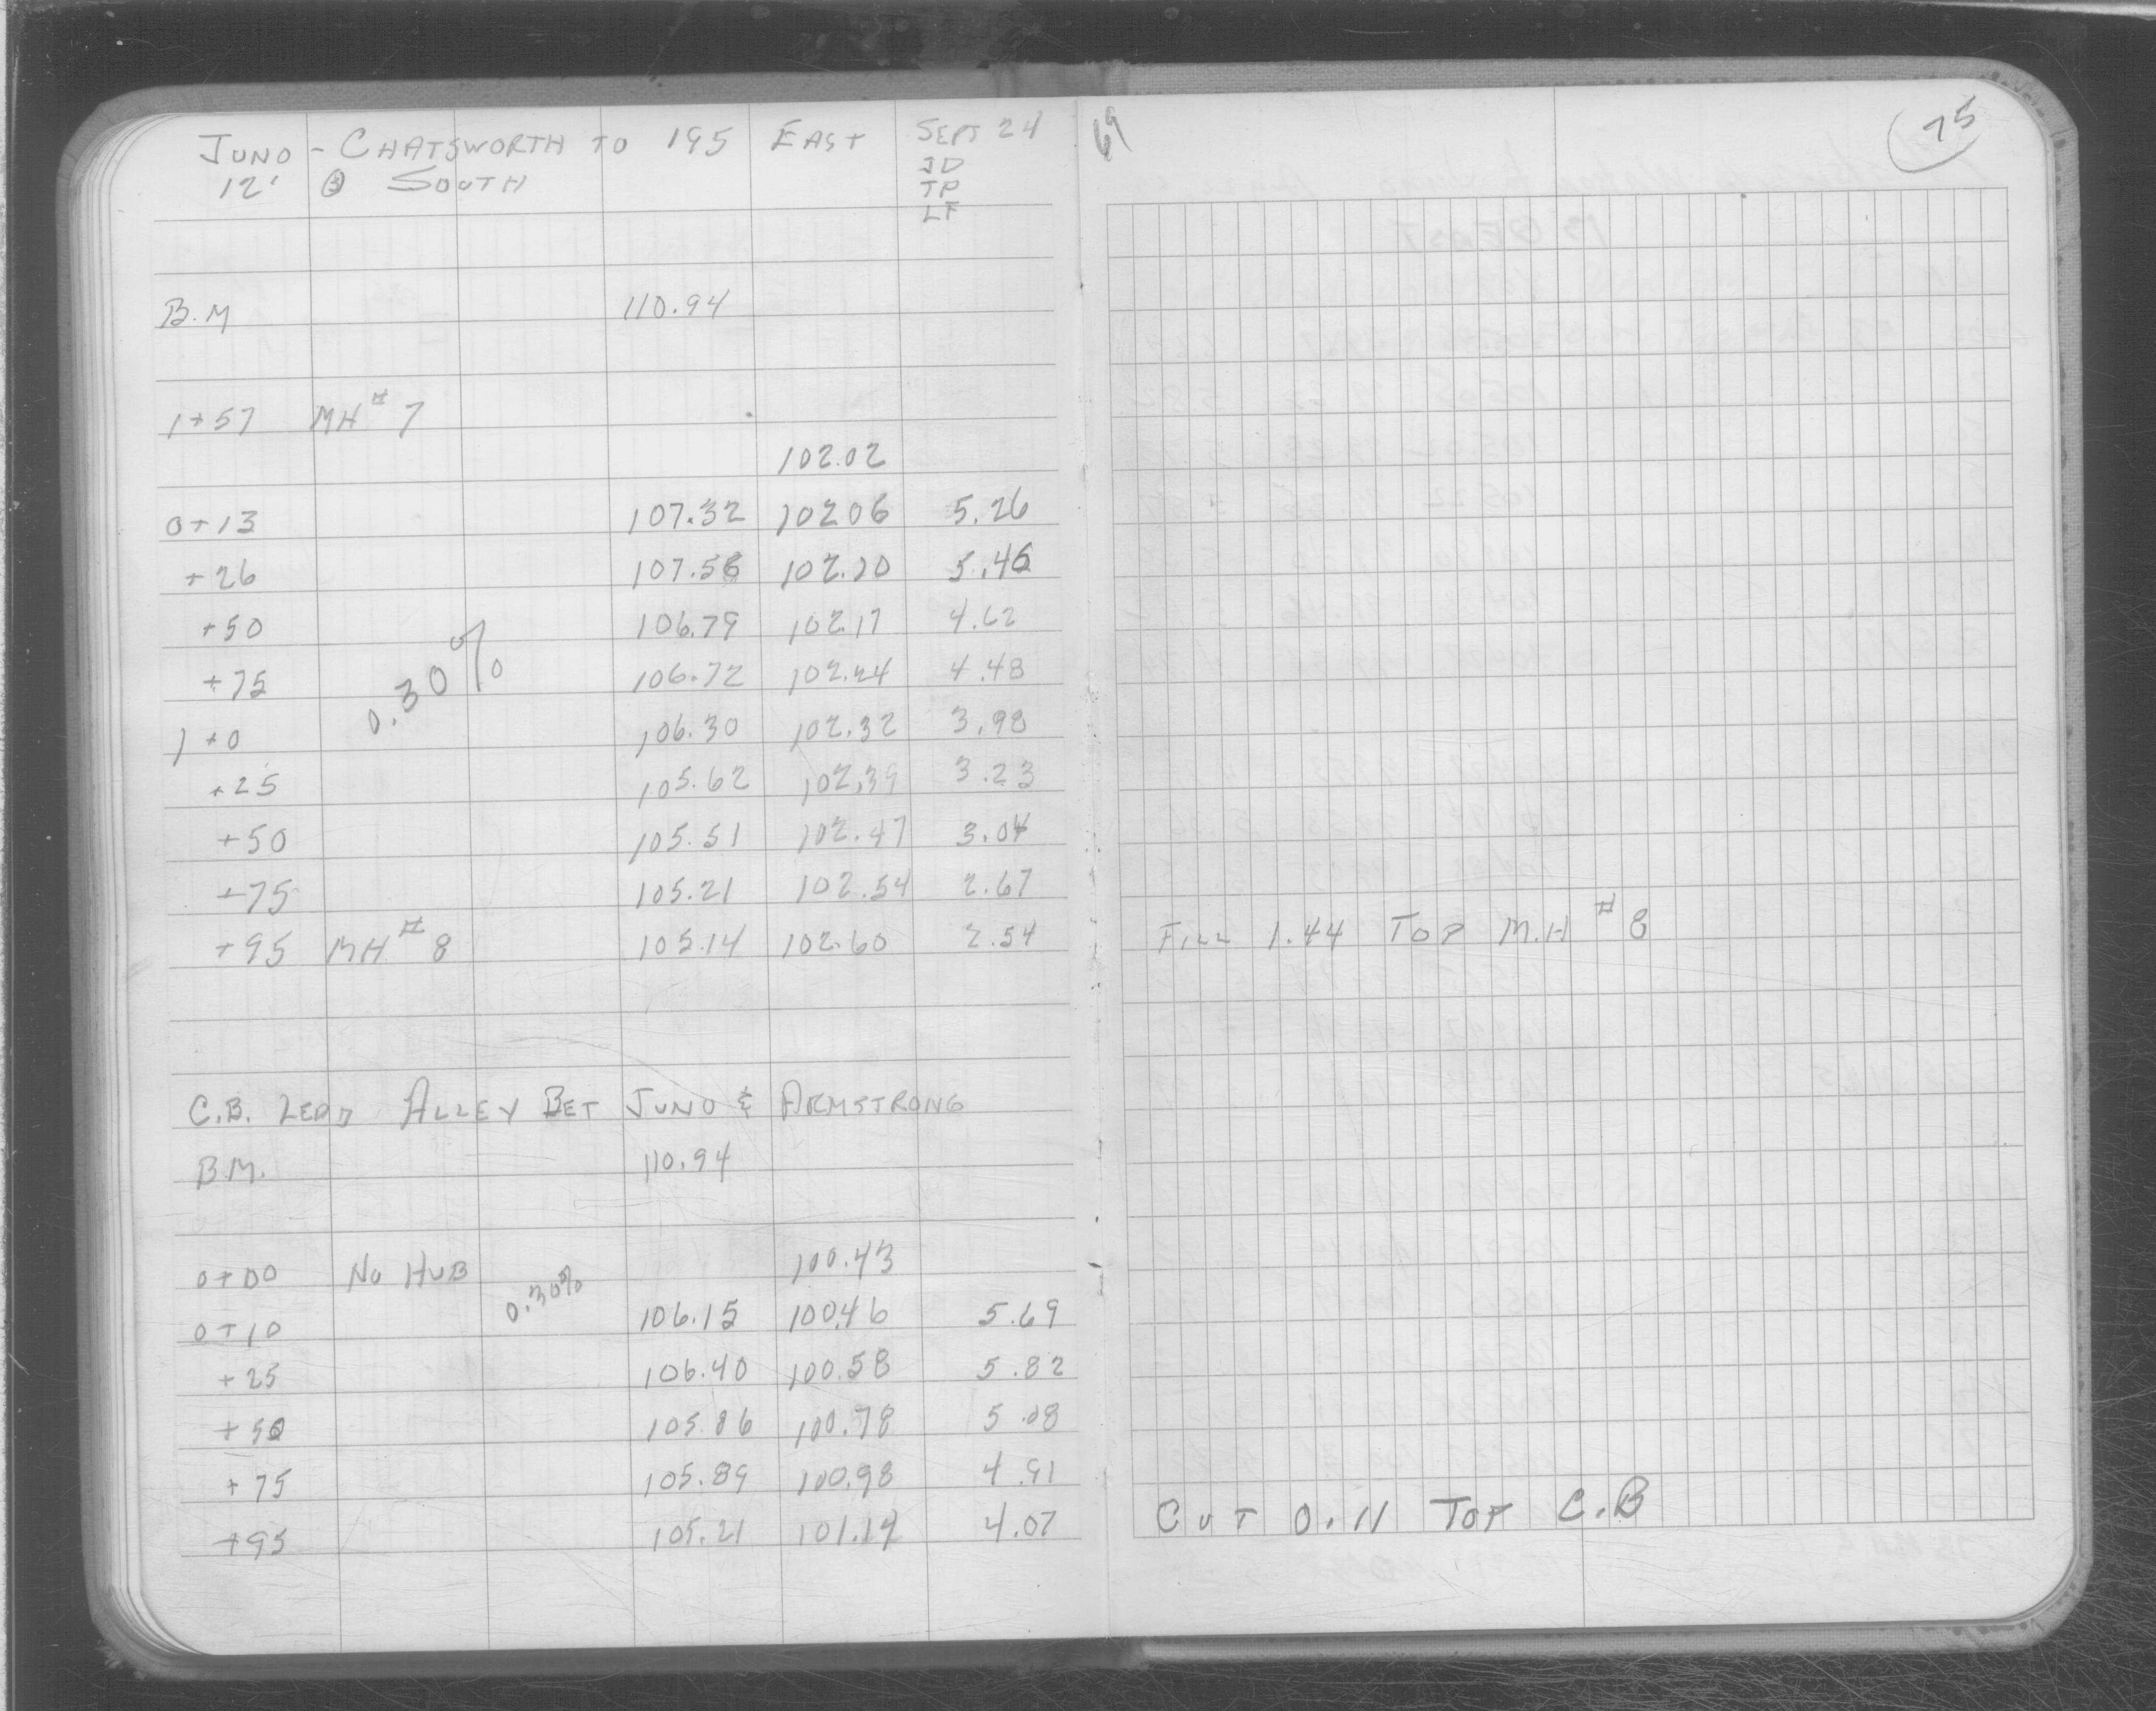 JUNO - CHATSWORTH TO 195 EAST SEPT 24
12' @ SOUTH JD
TP
LF
B.M 110.94
1+57 MH # 7
102.02
0+13 107.32 102 06 5.26
+26 107.56 102.10 5.46
+50 106.79 102.17 4.62
+75 106.72 102.24 4.48
0.30%
1+0 106.30 102.32 3.98
+25 105.62 102.39 3.23
+50 105.51 102.47 3.04
+75 105.21 102.54 2.67
+95 MH # 8 105.14 102.60 2.54
C.B. LEAD ALLEY BET JUNO & ARMSTRONG
B.M. 110.94
0+00 NO HUB 100.43
0.30%
0+10 106.15 100.46 5.69
+25 106.40 100.58 5.82
+50 105.86 100.78 5.08
+75 105.89 100.98 4.91
+95 105.21 101.14 4.07
69
75
FILL 1.44 TOP M.H # 8
CUT 0.11 TOP C.B